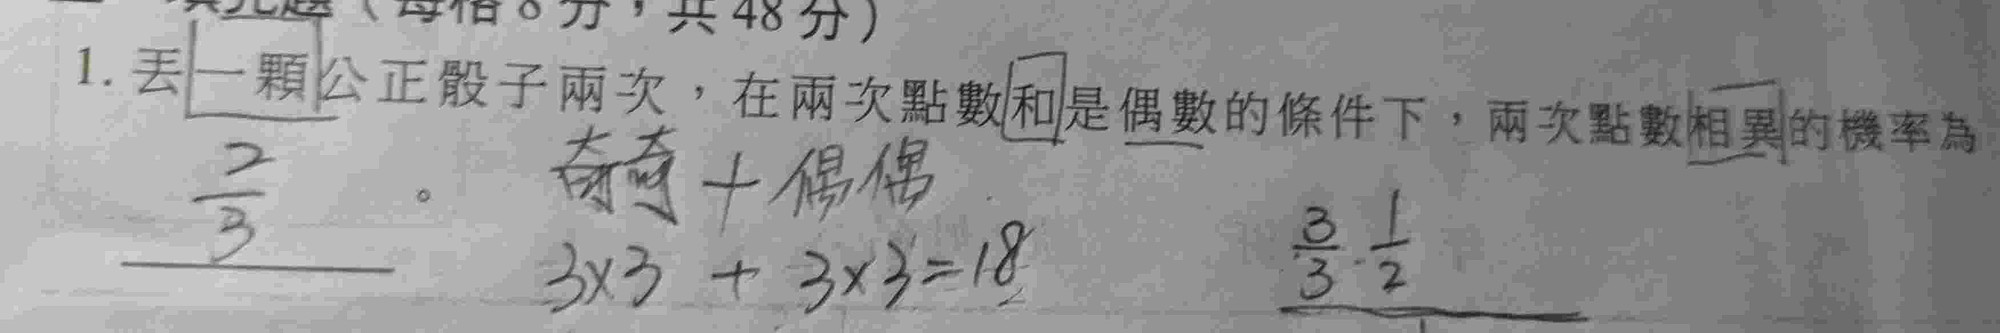 填充題（每格8分，共48分）
1. 丟一顆公正骰子兩次，在兩次點數和是偶數的條件下，兩次點數相異的機率為
2/3 。
奇奇+偶偶
3×3 + 3×3=18
3/3 · 1/2